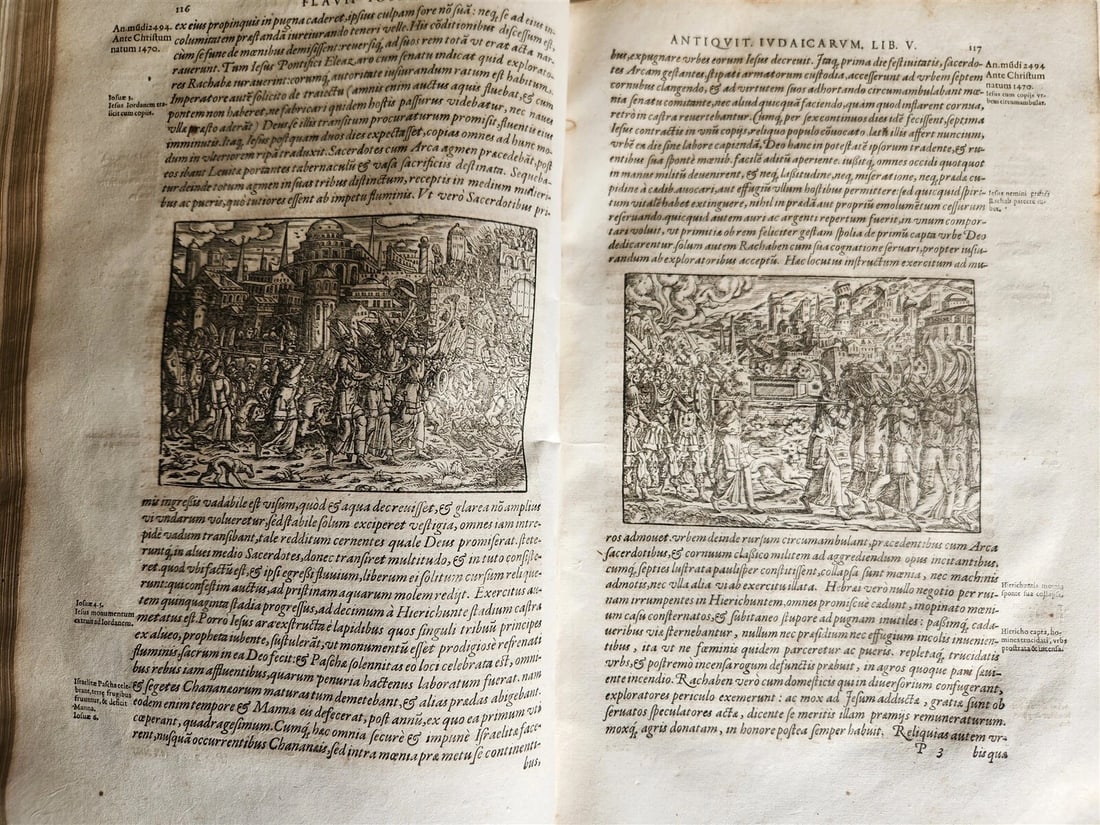 116
FLAVII
An. mūdi 2494.
Ante Christum
natum 1470.
ex eius propinquis in pugna caderet, ipsius culpam fore nō sua: neq, se ad eius in-
columitatem præstandā iureiurando teneri velle. His cōditionibus discessum est,
cum sese fune de mœnibus demisissent: reuersiq, ad suos rem totā vt erat acta nar-
rauerunt. Tum Iesus Pontifici Eleazaro cum senatu indicat quid explorato-
res Rachabæ iurauerint: eorumq, autoritate iusiurandum ratum est habitum.
Iosuæ 3.
Iesus Iordanem tra-
iicit cum copiis.
Imperatore autē solicito de traiectu (amnis enim auctus aquis fluebat, & cum
pontem non haberet, ne fabricari quidem hostis passurus videbatur, nec naues
vllæ præsto aderāt) Deus se illis transitum procuraturum promisit, fluentis eius
imminutis. Itaq, Iesus postquam duos dies expectasset, copias omnes ad hunc mo-
dum in vlteriorem ripā traduxit. Sacerdotes cum Arca agmen præcedebāt, post
eos ibant Leuitæ portantes tabernaculū & vasa sacrificiis destinata. Sequeba-
tur deinde totum agmen in suas tribus distinctum, receptis in medium mulieri-
bus ac pueris, quo tutiores essent ab impetu fluminis. Vt verò Sacerdotibus pri-
mis ingressis vadabile est visum, quòd & aqua decreuisset, & glarea nō amplius
vi vndarum volueretur, sed stabile solum exciperet vestigia, omnes iam intre-
pidè vadum transibant, tale redditum cernentes quale Deus promiserat. stete-
runtq, in aluei medio Sacerdotes, donec transiret multitudo, & in tuto consiste-
ret. quod vbi factū est, & ipsi egressi fluuium, liberum ei solitum cursum relique-
runt: qui confestim auctus, ad pristinam aquarum molem redijt. Exercitus au-
Iosuæ 4. 5.
Iesus monumentum
extruit ad Iordanem.
tem quinquaginta stadia progressus, ad decimum à Hierichunte stadium castra
metatus est. Porro Iesus ara exstructa è lapidibus quos singuli tribuū principes
ex alueo, propheta iubente, sustulerāt, vt monumentū esset prodigiose refrenati
fluminis, sacrum in ea Deo fecit: & Paschæ solennitas eo loci celebrata est, omni-
bus rebus iam affluentibus, quarum penuria hactenus laboratum fuerat. nam
Israelitæ Pascha cele-
brant, terræ frugibus
fruuntur, & deficit
Manna.
Iosuæ 6.
& segetes Chananæorum maturas tum demetebant, & alias prædas abigebant.
eodem enim tempore & Manna eis defecerat, post annū, ex quo ea primum vti
cœperant, quadragesimum. Cumq, hæc omnia securè & impunè Israelitæ face-
rent, nusquā occurrentibus Chananæis, sed intra mœnia præ metu se continenti-
bus,
ANTIQVIT. IVDAICARVM, LIB. V.
117
An. mūdi 2494
Ante Christum
natum 1470.
Iesus cum copiis vr-
bem circumambulat.
bus, expugnare vrbes eorum Iesus decreuit. Itaq, prima die festiuitatis, sacerdo-
tes Arcam gestantes, stipati armatorum custodia, accesserunt ad vrbem septem
cornubus clangendo, & ad virtutem suos adhortando circumambulant mœ-
nia senatu comitante, nec aliud quicquā faciendo, quam quod inflarent cornua,
retrò in castra reuertebantur. Cumq, per sex continuos dies idē fecissent, septima
Iesus contractis in vnū copiis, reliquo populo cōuocato, læta illis affert nuncium,
vrbē ea die sine labore capiendā, Deo hanc in potestatē ipsorum tradente, & ru-
entibus sua sponte mœnib. facilē aditū aperiente. iussitq, omnes occidi quotquot
in manus militū deuenirent, & neq, lassitudine, neq, miseratione, neq, prædæ cu-
pidine à cædib. auocari, aut effugiū vllum hostibus permittere: sed quicquid spiri-
Iesus nemini præter
Rachab parcere iu-
bet.
tum vitalē habet extinguere, nihil in prædā aut propriū emolumētum cessurum
reseruando. quicquid autem auri ac argenti repertum fuerit, in vnum compor-
tari voluit, vt primitias ob rem feliciter gestam spolia de primū capta vrbe Deo
dedicarentur. solum autem Rachaben cum sua cognatione seruari, propter iusiu-
randum ab exploratoribus acceptū. Hæc locutus instructum exercitum ad mu-
ros admouet. vrbem deinde rursum circumambulant, præcedentibus cum Arca
sacerdotibus, & cornuum classico militem ad aggrediendum opus incitantibus.
cumq, septies lustrata paulisper constitissent, collapsa sunt mœnia, nec machinis
admotis, nec vlla alia vi ab exercitu illata. Hebræi verò nullo negotio per rui-
Hierichuntis mœnia
sponte sua collapsa.
nam irrumpentes in Hierichuntem, omnes promiscuè cædunt, inopinato mœni-
um casu consternatos, & subitaneo stupore ad pugnam inutiles: passimq, cada-
ueribus viæ sternebantur, nullum nec præsidium nec effugium incolis inuenien-
Hiericho capta, ho-
mines trucidati, vrbs
prostrata & incensa.
tibus, ita vt ne fœminis quidem parceretur ac pueris. repletaq, trucidatis
vrbs, & postremò incensa rogum defunctis præbuit, in agros quoque pari sæui-
ente incendio. Rachaben verò cum domesticis qui in diuersorium confugerant,
exploratores periculo exemerunt: ac mox ad Iesum adductæ, gratiæ sunt ob
seruatos speculatores actæ, dicente se meritis illam præmijs remuneraturum.
moxq, agris donatam, in honore postea semper habuit. Reliquias autem vr-
P 3
bis quæ